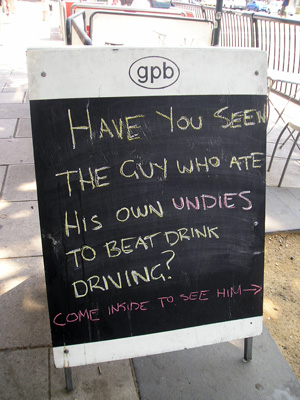 gpb
HAVE YOU SEEN
THE GUY WHO ATE
HIS OWN UNDIES
TO BEAT DRINK
DRIVING?
COME INSIDE TO SEE HIM→